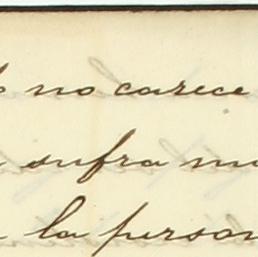 no carece
sufra
la person